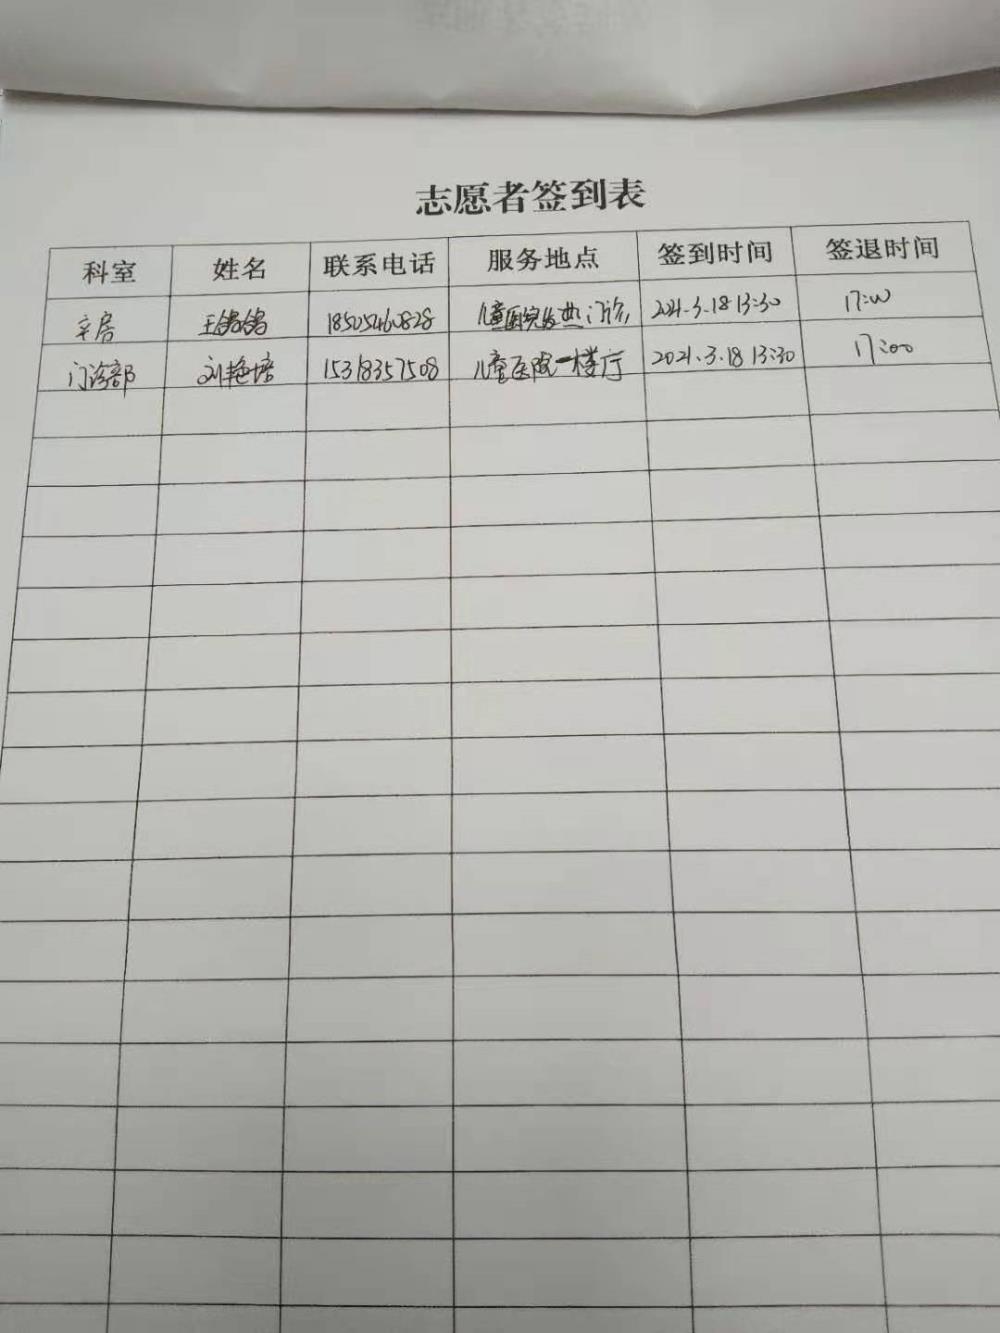 志愿者签到表
科室 姓名 联系电话 服务地点 签到时间 签退时间
房 王 18505460828 儿童医院发热门诊 2021.3.18 13:30 17:00
门诊部 刘艳培 15318357508 儿童医院一楼厅 2021.3.18 13:30 17:00